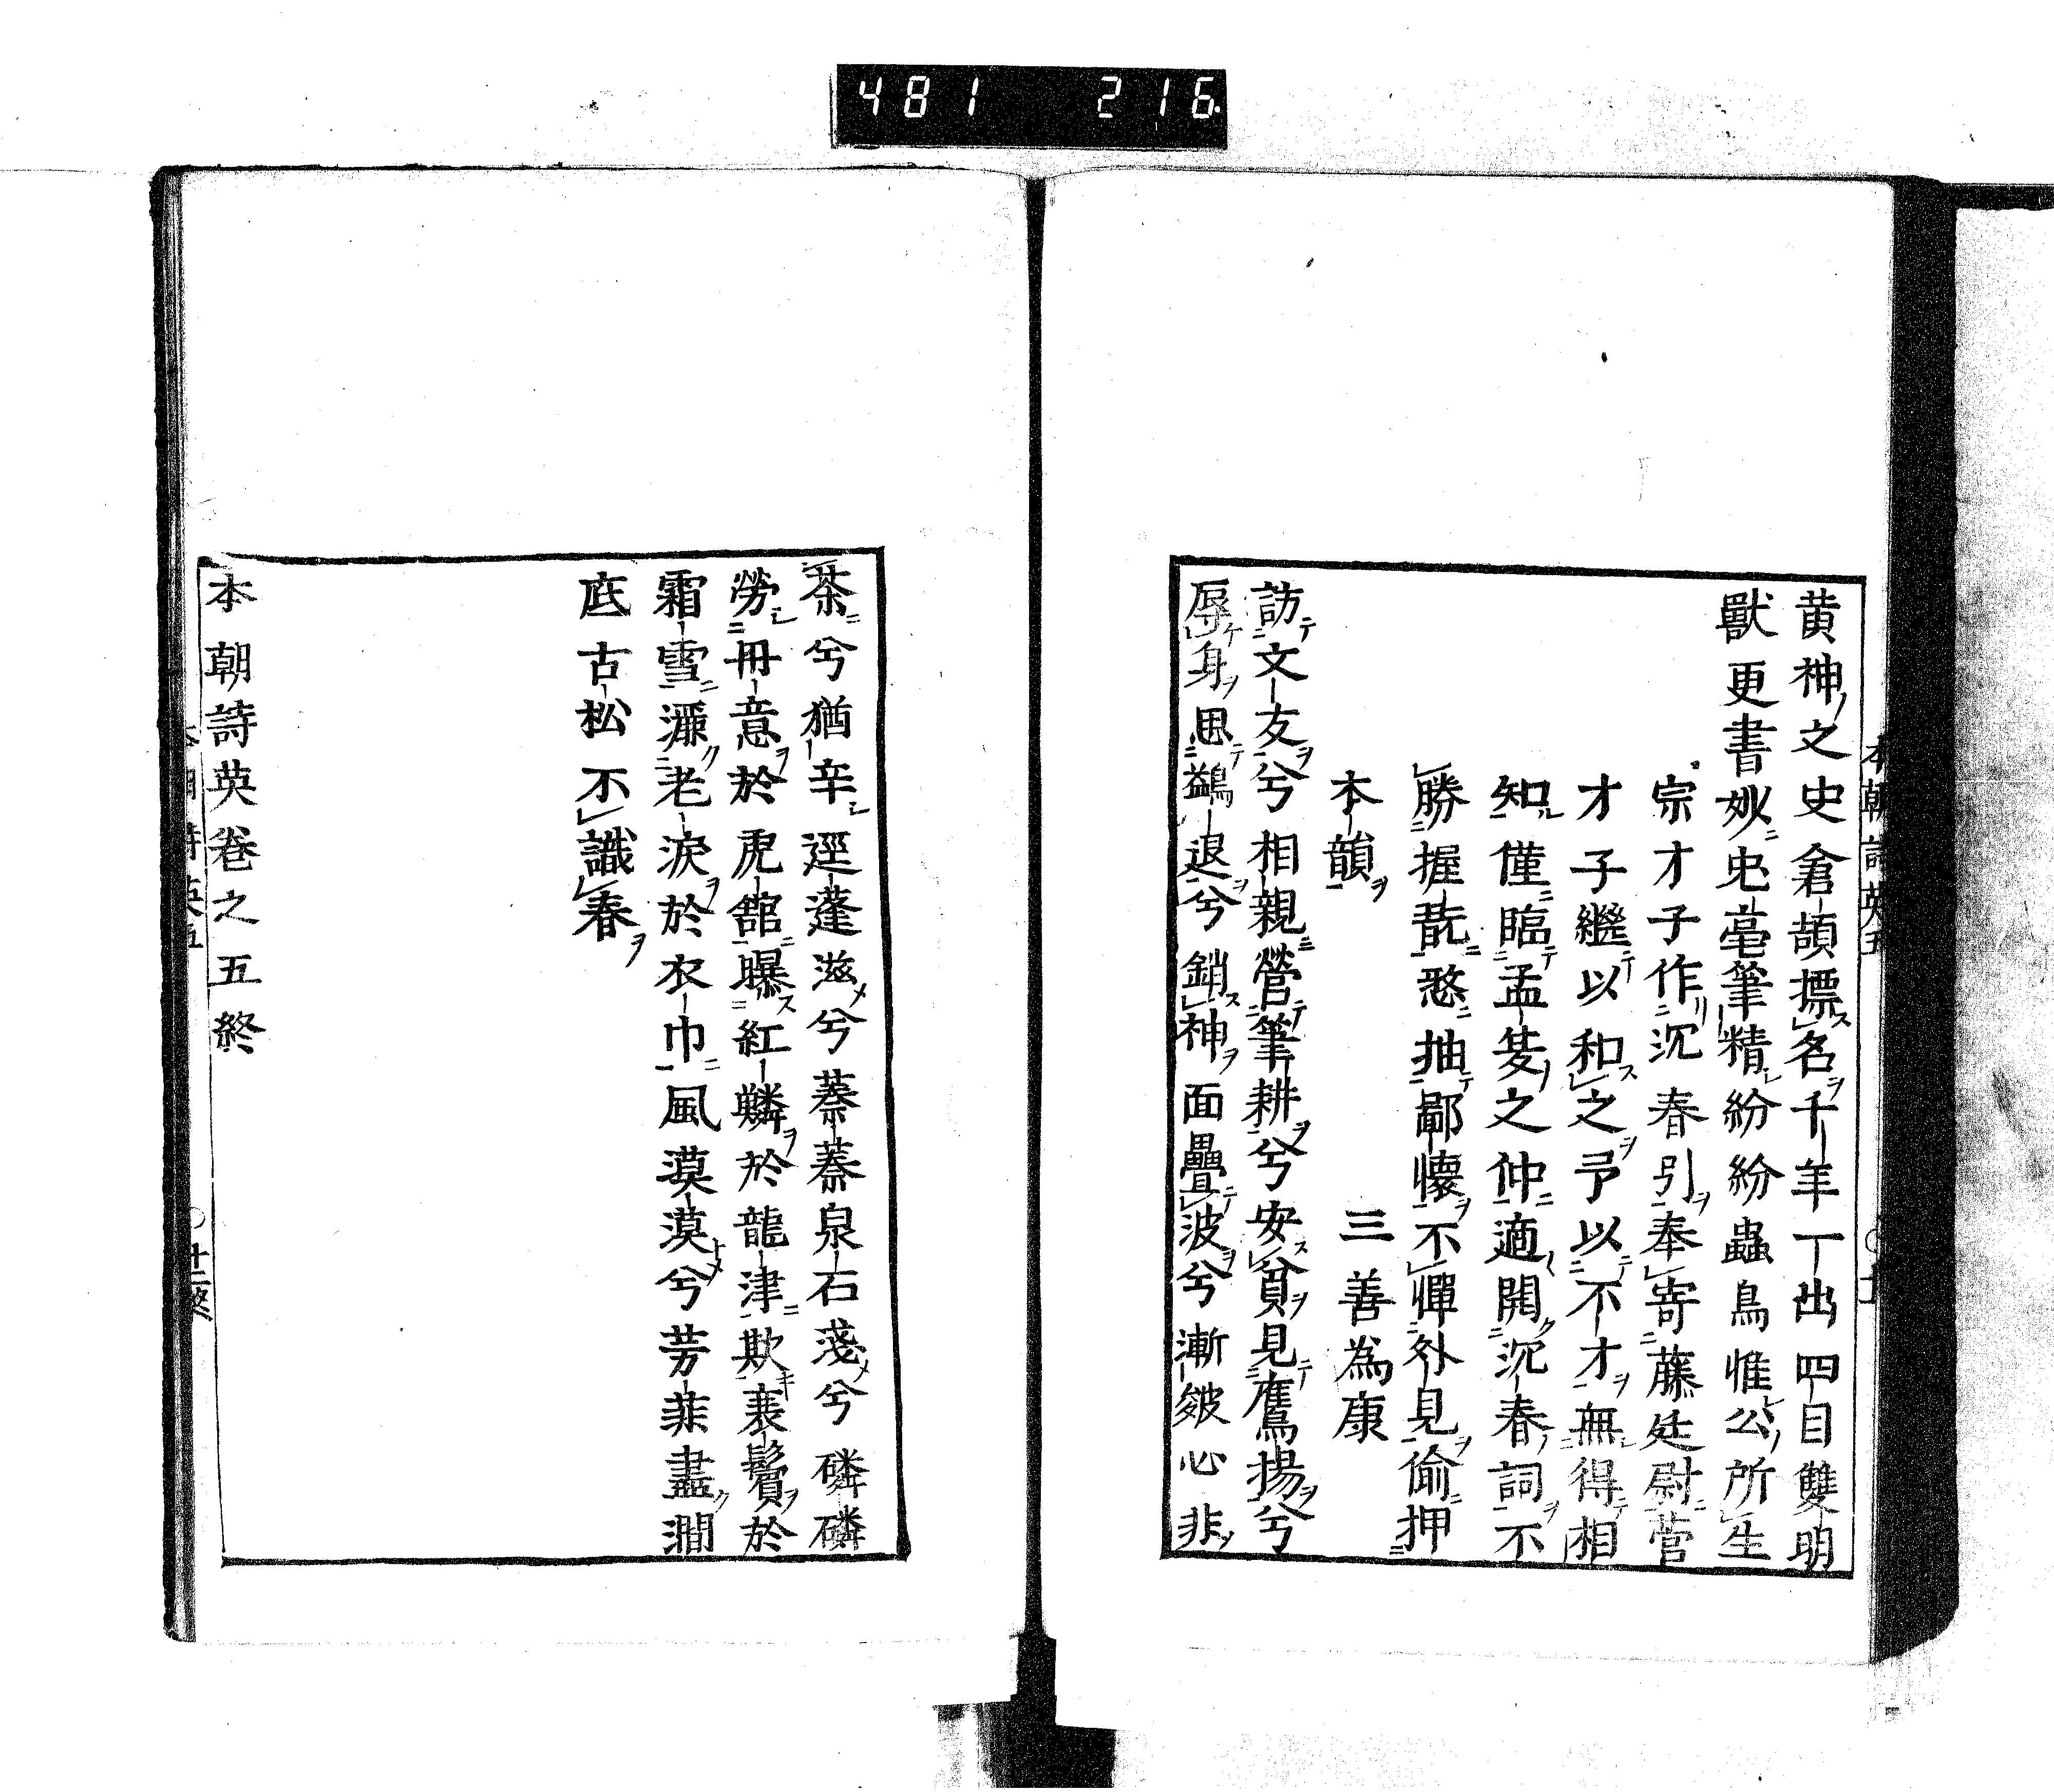 481 216
黄神之史倉頡摽名千年一出四目雙明
獸更書妙史毫筆精紛紛蟲鳥惟公所生
宗才子作沉春引奉寄藤廷尉菅
才子繼以和之予以不才無得相
知僅臨孟之仲適開沉春詞不
勝握翫憗抽鄙懷不憚外見偷押
本韻 三善為康
訪文友兮相親營筆耕兮安貧見鷹揚兮
辱身思鷁退兮銷神面疊波兮漸皴心非
荼兮猶辛逕蓬滋兮蓁蓁泉石淺兮磷磷
勞冊意於虎館曝紅鱗於龍津欺衰鬢於
霜雪灑老淚於衣巾風漠漠兮芳菲盡澗
底古松不識春
本朝詩英卷之五終